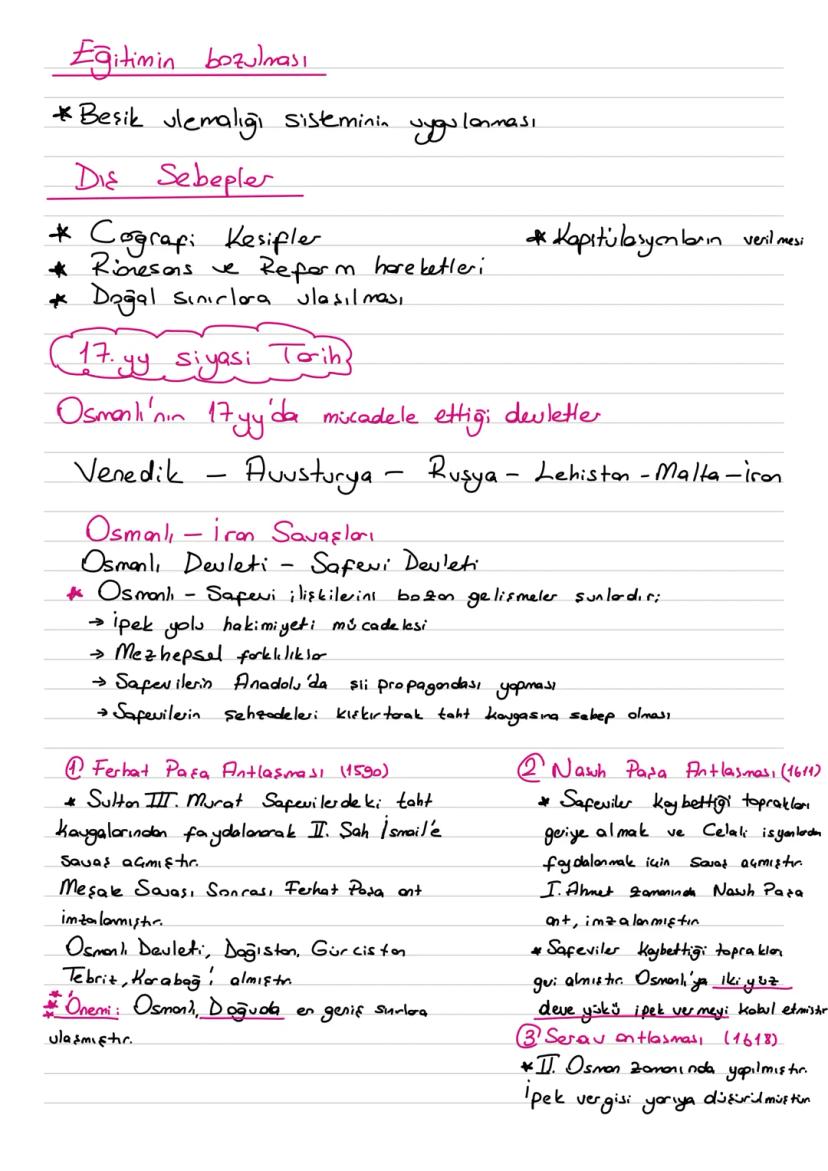 Eğitimin bozulması
* Beşik ulemalığı sisteminin uygulanması
Dış Sebepler
* Coğrafi Keşifler
* Kapitülasyonların verilmesi
* Rönesans ve Reform hareketleri
* Doğal sınırlara ulaşılması
17.yy siyasi Tarih
Osmanlı'nın 17yy'da mücadele ettiği devletler
Venedik – Avusturya – Rusya – Lehistan – Malta – İran
Osmanlı – İran Savaşları
Osmanlı Devleti – Safevi Devleti
* Osmanlı – Safevi ilişkilerini bozan gelişmeler şunlardır;
→ İpek yolu hakimiyeti mücadelesi
→ Mezhepsel farklılıklar
→ Safevilerin Anadolu'da şii propagandası yapması
→ Safevilerin şehzadeleri kışkırtarak taht kavgasına sebep olması
① Ferhat Paşa Antlaşması (1590)
* Sultan III. Murat Safevilerdeki taht
kavgalarından faydalanarak II. Şah İsmail'e
savaş açmıştır.
Meşale Savaşı Sonrası Ferhat Paşa ant
imzalanmıştır.
Osmanlı Devleti, Dağıstan, Gürcistan
Tebriz, Karabağ'ı almıştır.
** Önemi: Osmanlı, Doğuda en geniş sınırlara
ulaşmıştır.
② Nasuh Paşa Antlaşması (1611)
* Safeviler kaybettiği toprakları
geriye almak ve Celali isyanlarından
faydalanmak için savaş açmıştır.
I. Ahmet zamanında Nasuh Paşa
ant, imzalanmıştır
* Safeviler kaybettiği toprakları
geri almıştır. Osmanlı'ya iki yüz
deve yükü ipek vermeyi kabul etmiştir
③ Serav antlaşması (1618)
* II. Osman zamanında yapılmıştır.
İpek vergisi yarıya düşürülmüştür